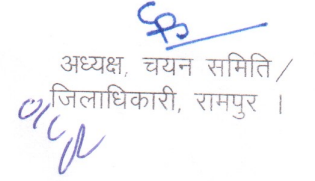 अध्यक्ष, चयन समिति /
जिलाधिकारी, रामपुर ।